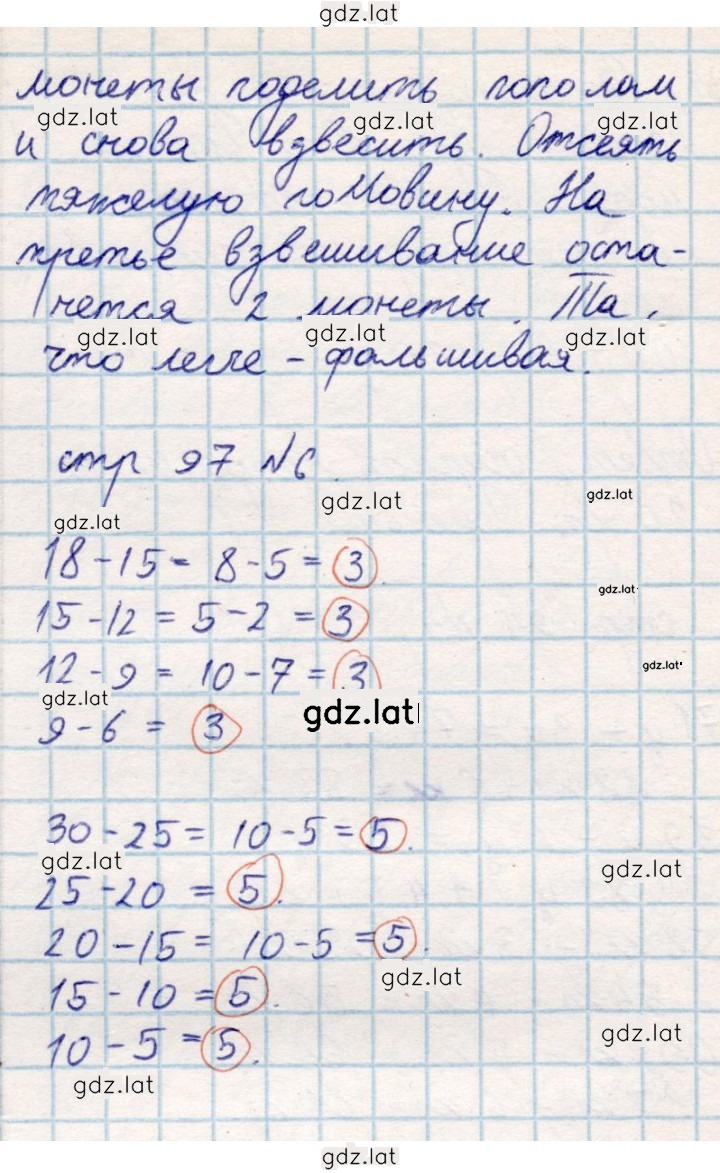 gdz.lat
монеты поделить пополам
gdz.lat gdz.lat gdz.lat
и снова взвесить. Отсеять
тяжелую половину. На
третье взвешивание оста-
нется 2 монеты. Та,
gdz.lat gdz.lat gdz.lat
что легче - фальшивая.
стр 97 №6.
gdz.lat gdz.lat
gdz.lat
18-15= 8-5= 3.
gdz.lat
15-12 = 5-2 = 3
gdz.lat
12-9 = 10-7= 3
gdz.lat gdz.lat
9-6 = 3
30-25= 10-5= 5.
gdz.lat gdz.lat
25-20 = 5.
20-15= 10-5=5.
gdz.lat
15-10 =5.
10-5 =5.
gdz.lat
gdz.lat
gdz.lat